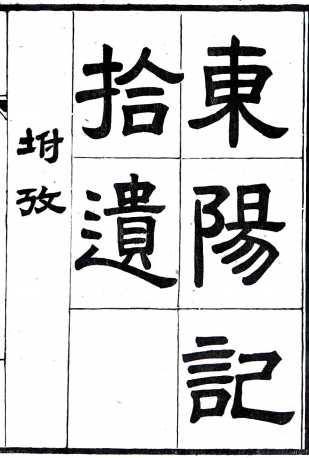 東陽記
拾遺
坿攷